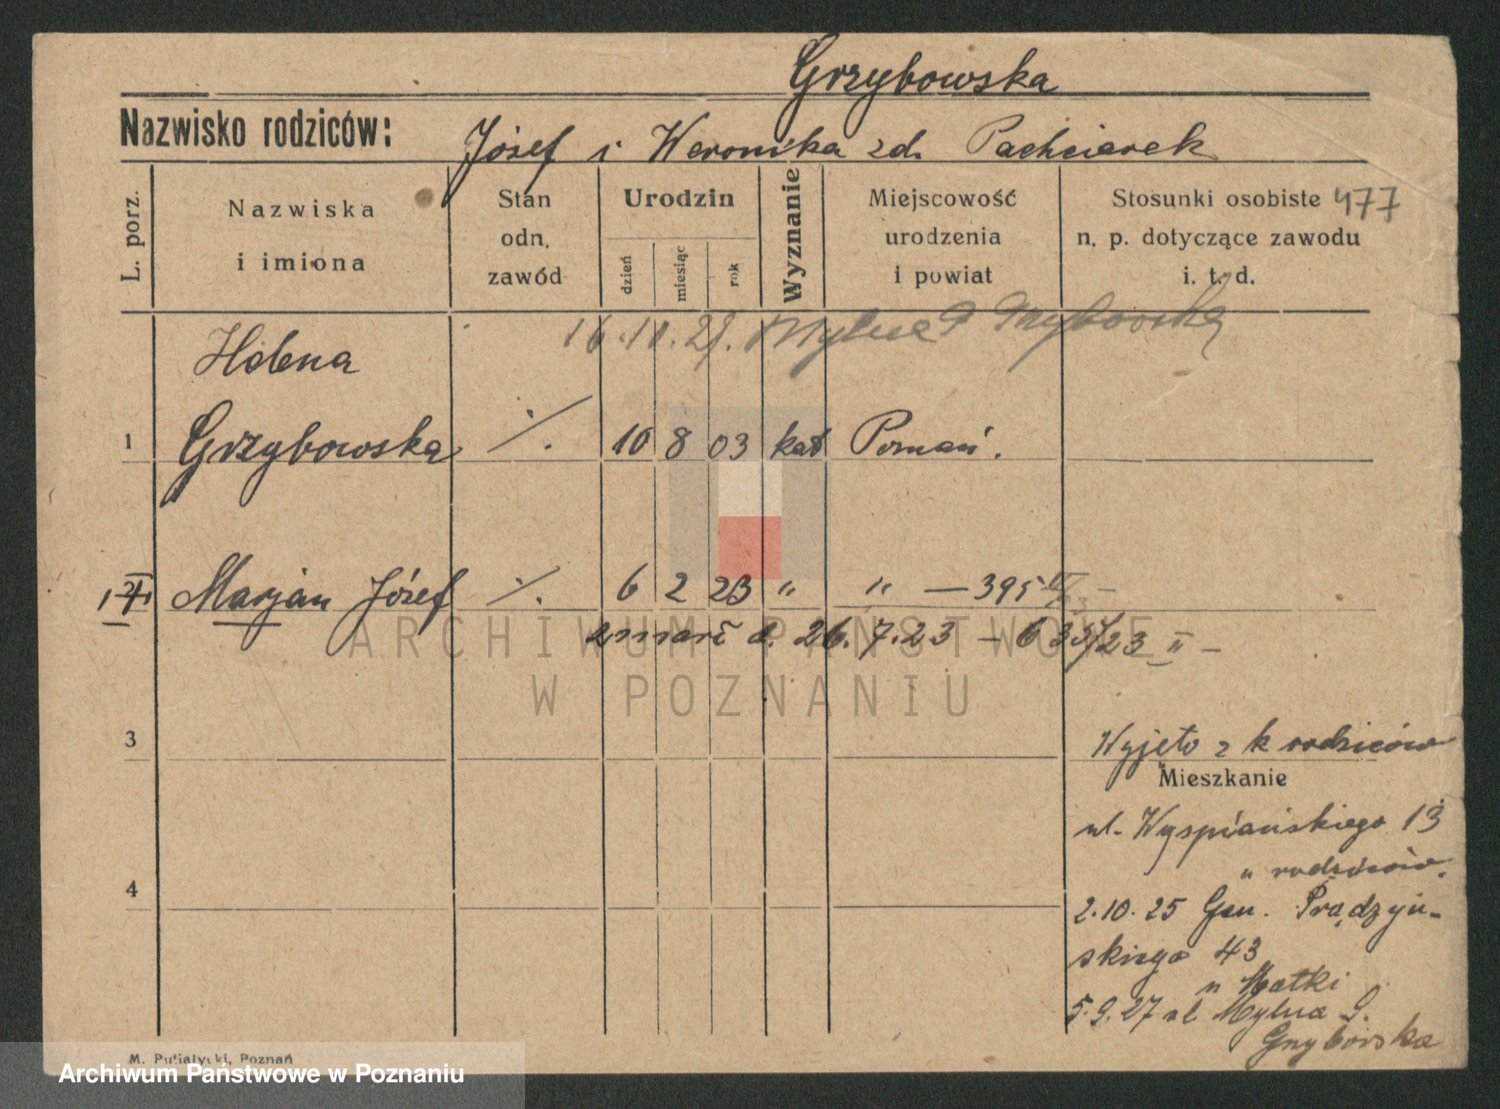 Grzybowska
Nazwisko rodziców: Józef i Weronika zd. Pachciarek
L. porz.
Nazwiska
i imiona
Stan
odn.
zawód
Urodzin
dzień
miesiąc
rok
Wyznanie
Miejscowość
urodzenia
i powiat
Stosunki osobiste 477
n. p. dotyczące zawodu
i. t. d.
16.11.27. Mylna 9 Grzybowska
Helena
1 Grzybowska %. 10 8 03 kat Poznań.
Marjan Józef %. 6 2 23 " " — 395
zmarł d. 26.7.23 – 633/23 II –
3
Wyjęto z k rodziców
Mieszkanie
ul. Wyspiańskiego 13
u rodziców.
4
2.10.25 Gen. Prądzyń-
skiego 43
u Matki
5.9.27 ul Mylna 9.
Grzybowska
M. Putiatycki, Poznań
ARCHIWUM PAŃSTWOWE
W POZNANIU
Archiwum Państwowe w Poznaniu